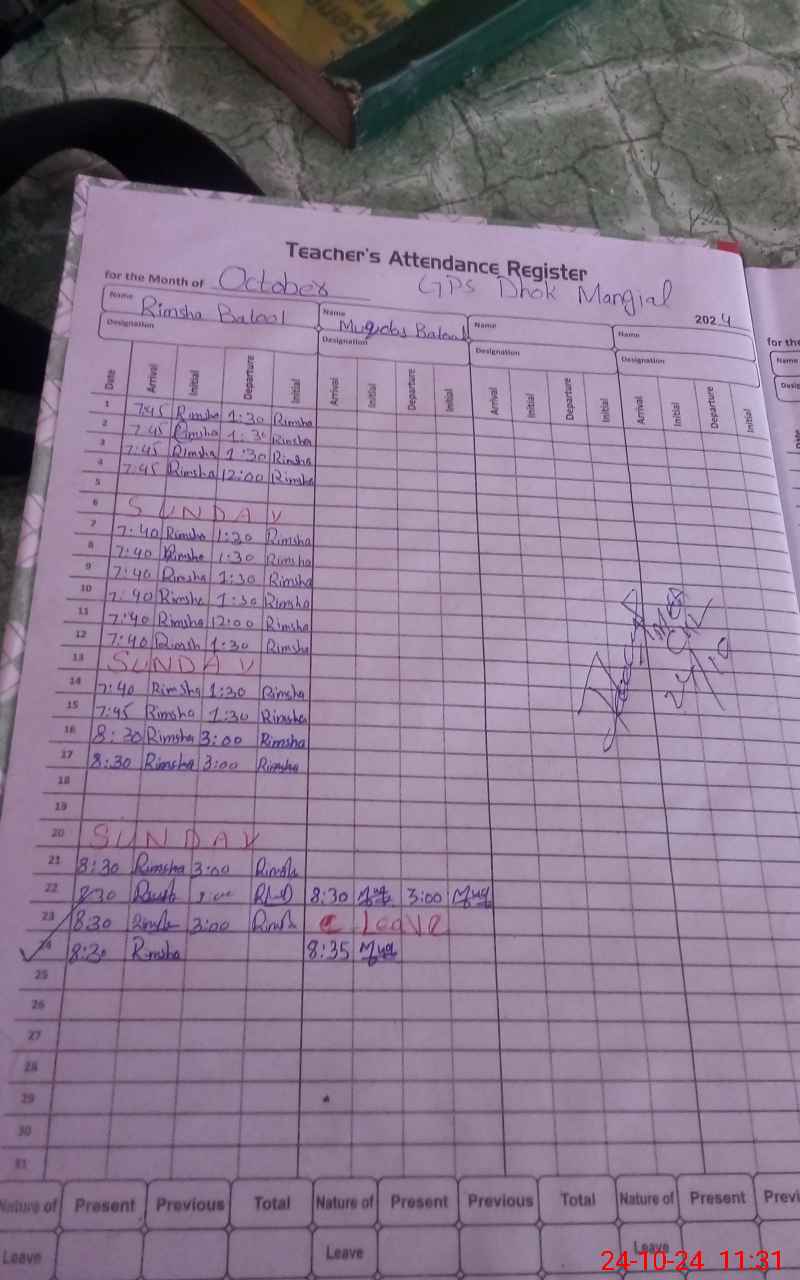 Teacher's Attendance Register
for the Month of October GPS Dhok Mangial 2024
Name Rimsha Batool Name Batool Name Name
Designation Designation Designation Designation
Date Arrival Initial Departure Initial Arrival Initial Departure Initial Arrival Initial Departure Initial Arrival Initial Departure Initial
1 7:45 Rimsha 1:30 Rimsha
2 7:45 Rimsha 1:30 Rimsha
3 7:45 Rimsha 1:30 Rimsha
4 7:45 Rimsha 12:00 Rimsha
5
6 SUNDAY
7 7:40 Rimsha 1:30 Rimsha
8 7:40 Rimsha 1:30 Rimsha
9 7:40 Rimsha 1:30 Rimsha
10 7:40 Rimsha 1:30 Rimsha
11 7:40 Rimsha 12:00 Rimsha
12 7:40 Rimsh 1:30 Rimsha
13 SUNDAY
14 7:40 Rimsha 1:30 Rimsha
15 7:45 Rimsha 1:30 Rimsha
16 8:30 Rimsha 3:00 Rimsha
17 8:30 Rimsha 3:00 Rimsha
18
19
20 SUNDAY
21 8:30 Rimsha 3:00 Rimsha
22 8:30 8:30 Muq 3:00 Muq
23 8:30 3:00 Leave
24 8:30 Rimsha 8:35 Muq
25
26
27
28
29
30
31
24/10
Nature of Leave Present Previous Total Nature of Leave Present Previous Total Nature of Leave Present Previ
for the
Name
Desig
24-10-24 11:31